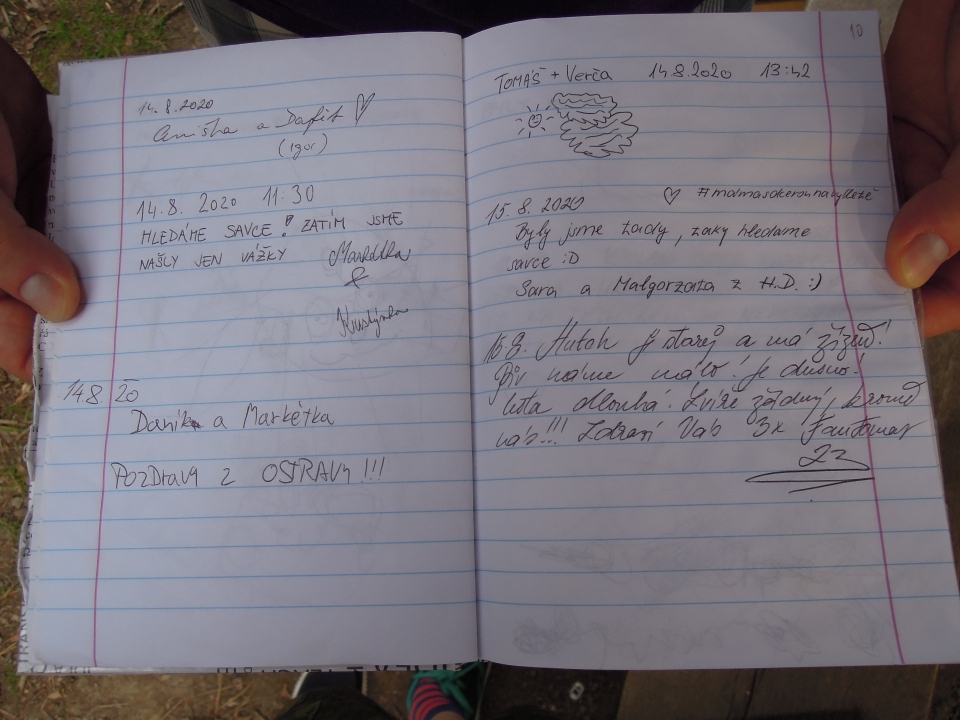 14.8.2020
a Dafit
(Igor)
14.8. 2020 11:30
HLEDÁME SAVCE! ZATÍM JSME
NAŠLY JEN VÁŽKY
Markétka
&
Kristýnka
14.8 20
Daník a Markétka
POZDRAVY Z OSTRAVY!!!
10
TOMÁŠ + Verča 14.8.2020 13:42
15. 8. 2020
Byly jsme tady, taky hledame
savce :D
Sara a Małgorzata z H.D. :)
15.8. je starej a má
Piv máme málo! Je dusno!
léta dlouhá. Zvíře žádný, kromě
nás!!! Zdraví Vás 3x Fantomas